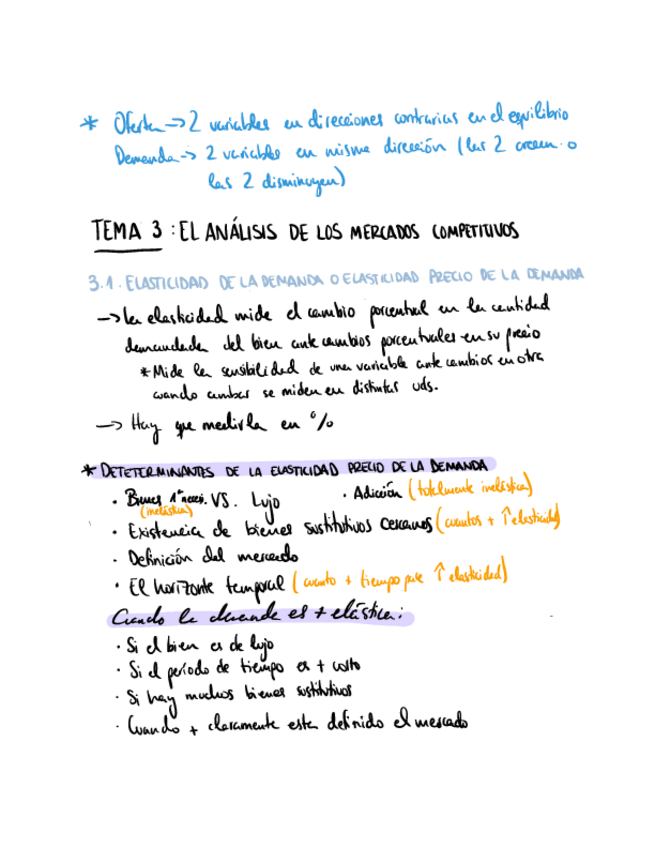 * Oferta → 2 variables en direcciones contrarias en el equilibrio
Demanda → 2 variables en misma dirección (las 2 crecen o
las 2 disminuyen)
TEMA 3 : EL ANÁLISIS DE LOS MERCADOS COMPETITIVOS
3.1. ELASTICIDAD DE LA DEMANDA O ELASTICIDAD PRECIO DE LA DEMANDA
→ la elasticidad mide el cambio porcentual en la cantidad
demandada del bien ante cambios porcentuales en su precio
* Mide la sensibilidad de una variable ante cambios en otra
cuando ambas se miden en distintas uds.
→ Hay que medirla en %
* DETETERMINANTES DE LA ELASTICIDAD PRECIO DE LA DEMANDA
· Bienes 1ª neces. VS. Lujo · Adicción (totalmente inelástica)
(inelástica)
· Existencia de bienes sustitutivos cercanos (cuantos + ↑ elasticidad)
· Definición del mercado
· El horizonte temporal (cuanto + tiempo pase ↑ elasticidad)
Cuando la demanda es + elástica:
· Si el bien es de lujo
· Si el período de tiempo es + corto
· Si hay muchos bienes sustitutivos
· Cuando + claramente esta definido el mercado